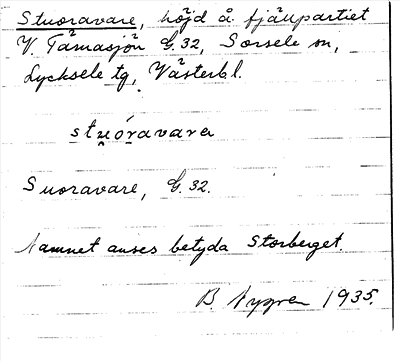 Stuoravare, höjd å fjällpartiet
V. Tämasjön G.32, Sorsele sn,
Lycksele tg, Västerb l.
stu̯óravarɐ
Suoravare, G. 32.
Namnet anses betyda Storberget.
B. Nygren 1935.